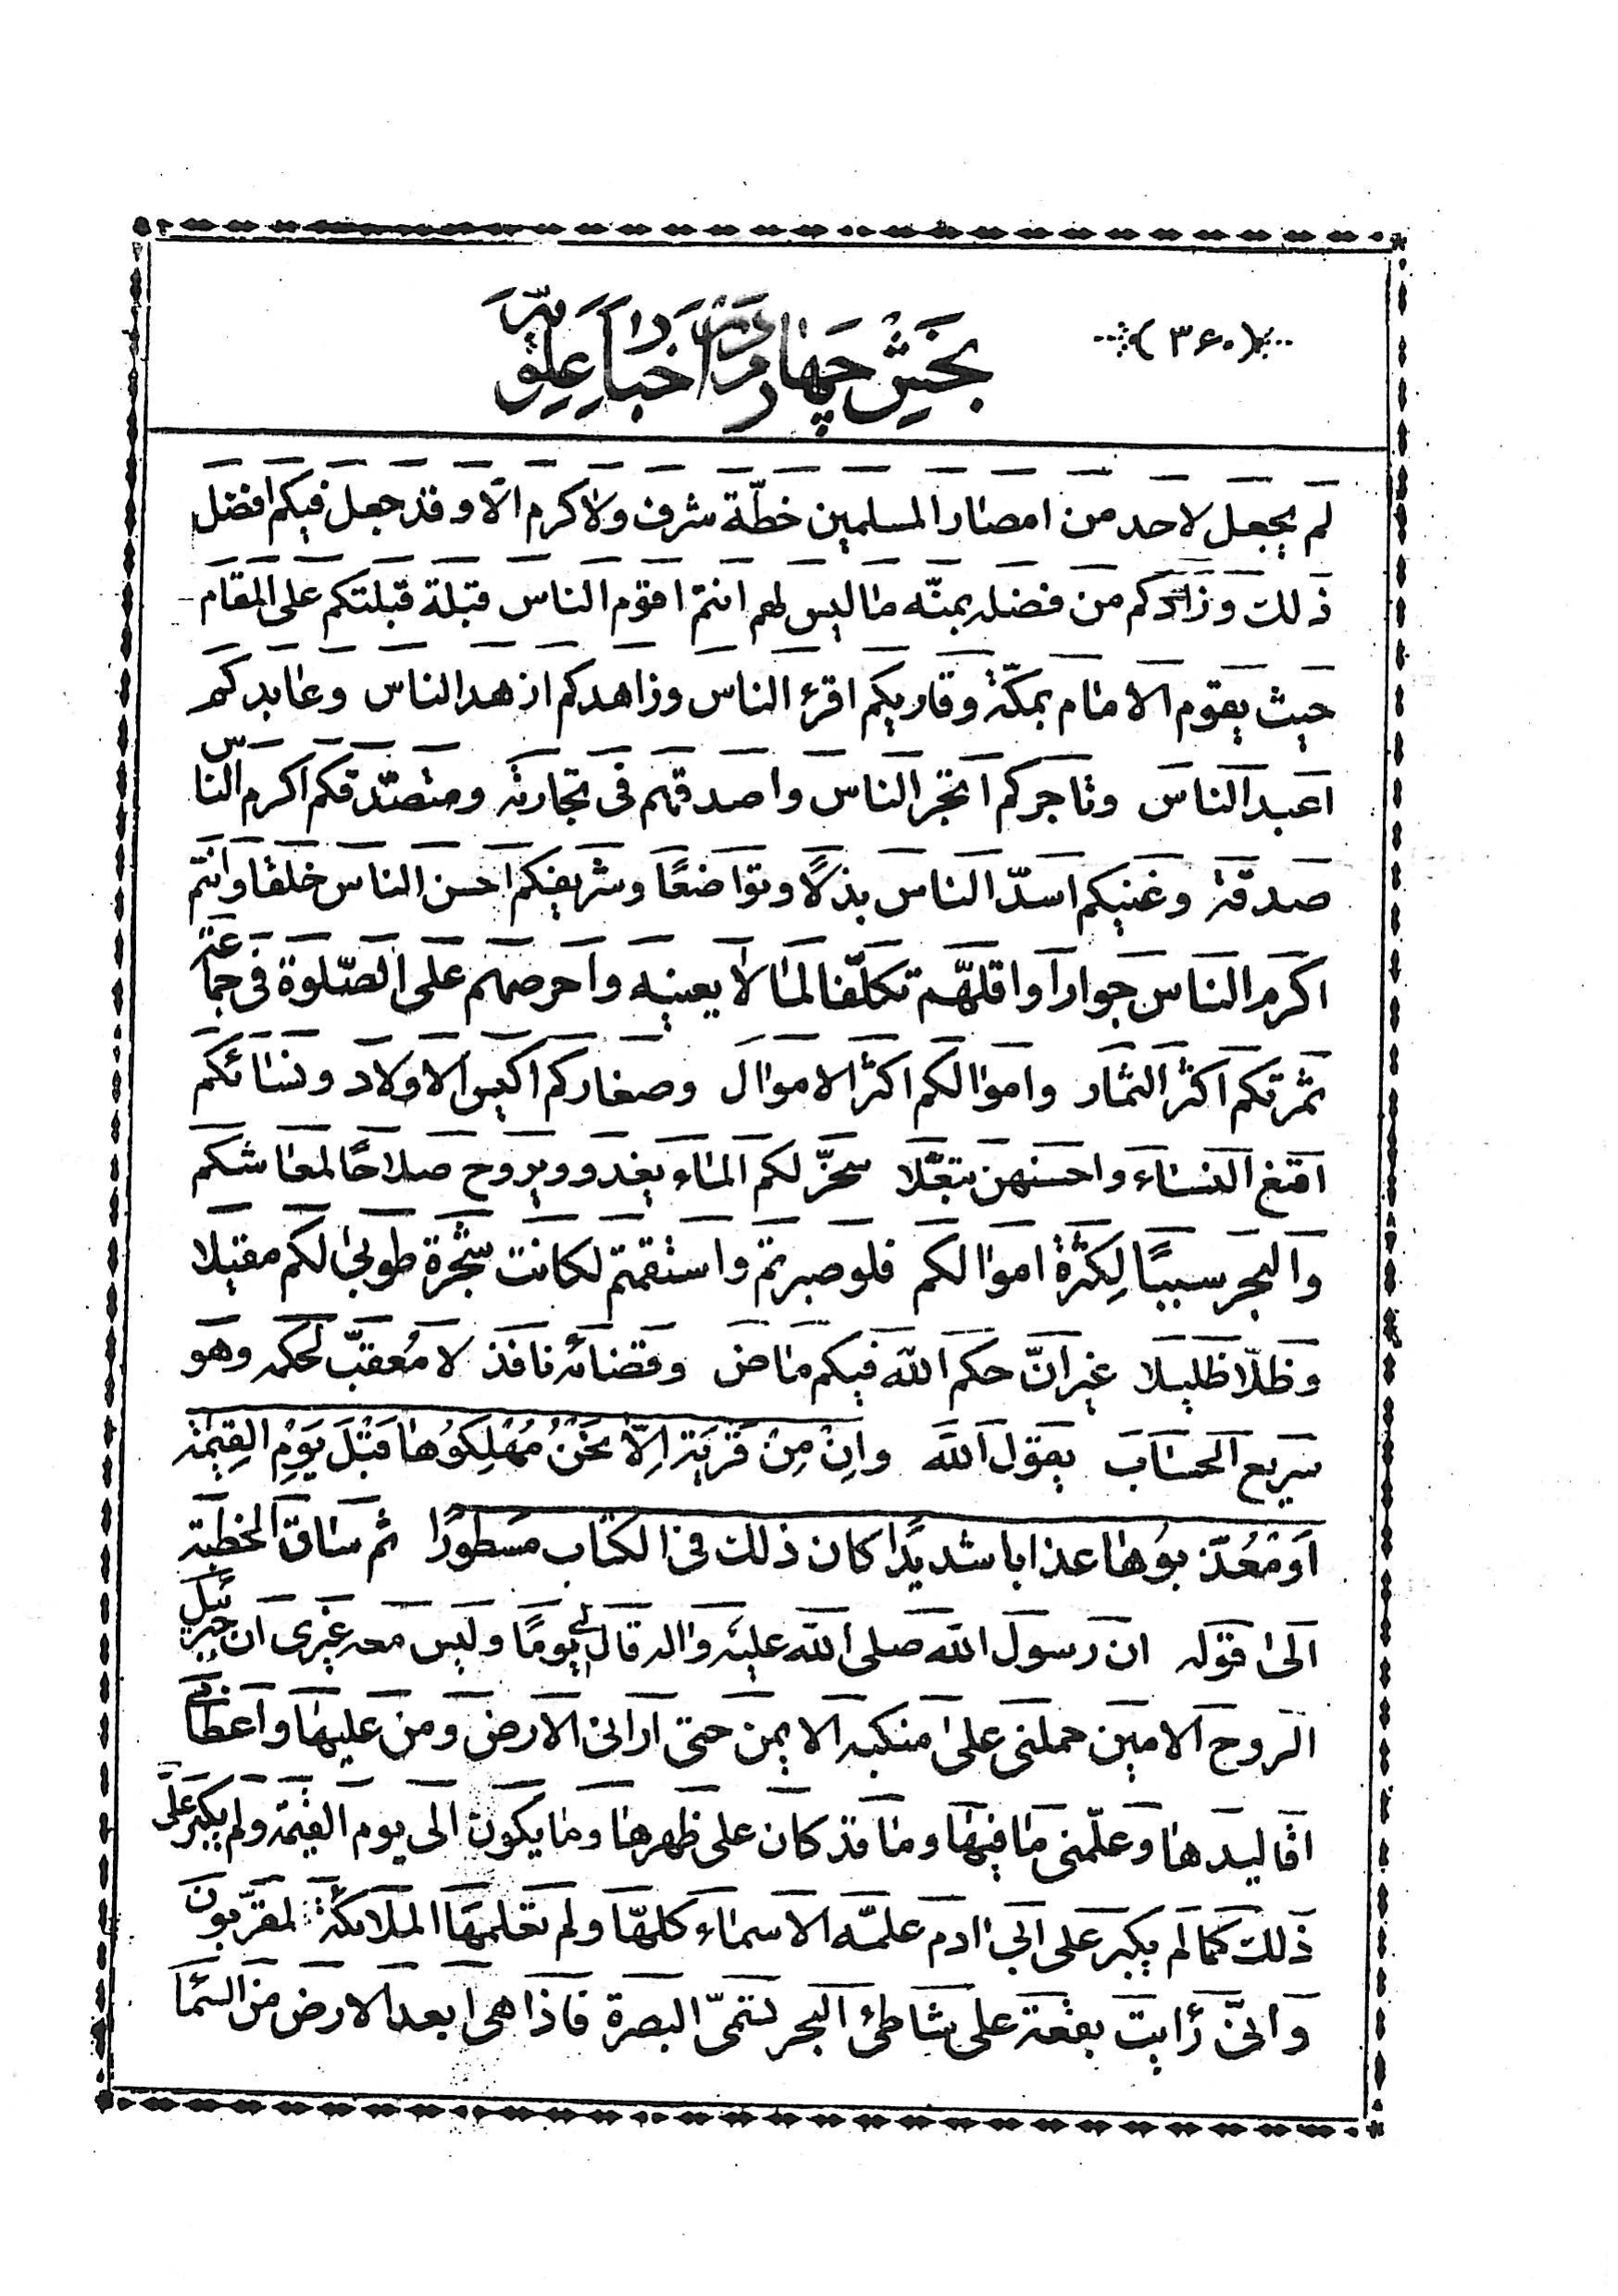 (۳۶۰)
بخش چهارم در اخبار علویّه
لم یجعل لاحد من امصار المسلمین خطّة شرف ولا کرم الّا وقد جعل فیکم افضل
ذلک وزادکم من فضله بمنّه ما لیس لهم انتم اقوم الناس قبلة قبلتکم علی المقام
حیث یقوم الامام بمکّة وقاریکم اقرء الناس وزاهدکم ازهد الناس وعابدکم
اعبد الناس وتاجرکم اتجر الناس واصدقهم فی تجارته ومتصدّقکم اکرم الناس
صدقة وغنیکم اسدّ الناس بذلًا وتواضعًا وشریفکم احسن الناس خلقا وانتم
اکرم الناس جوارا واقلهّم تکلّفا لما لا یعنیه واحرصهم علی الصّلوة فی جماعة
ثمرتکم اکثر الثمار واموالکم اکثر الاموال وصغارکم اکیس الاولاد ونسائکم
اقنع النساء واحسنهن تبعّلا سخّر لکم الماء یغدو ویروح صلاحًا لمعاشکم
والبحر سببًا لِکثرة اموالکم فلو صبرتم واستقمتم لکانت شجرة طوبی لکم مقیلا
وظلّا ظلیلا غیر انّ حکم الله فیکم ماض وقضائه نافذ لا مُعقبّ لحکمه وهو
سریع الحساب یقول الله وانِ مِنْ قَریَة اِلّا نَحْنُ مُهْلِکوُها قَبْلَ یَوْمِ القِیٰمة
اَو مُعَذّبوُها عذابا شدیدًا کان ذلک فی الکتاب مسطورًا ثم ساق الخطبة
الی قوله ان رسول الله صلی الله علیه واله قال لی یومًا ولیس معه غیری ان جبرئیل
الروح الامین حملنی علی منکبه الایمن حتی ارانی الارض ومن علیها واعطانی
اقالیدها وعلّمنی ما فیها وما قد کان علی ظهرها وما یکون الی یوم القیمة ولم یکبر علَّی
ذلک کما لم یکبر علی ابی ادم علمّه الاسماء کلهّا ولم تعلمها الملائکة المقرّبون
وانیّ رأیت بقعة علی شاطئ البحر تسمّی البصرة فاذا هی ابعد الارض من السّما